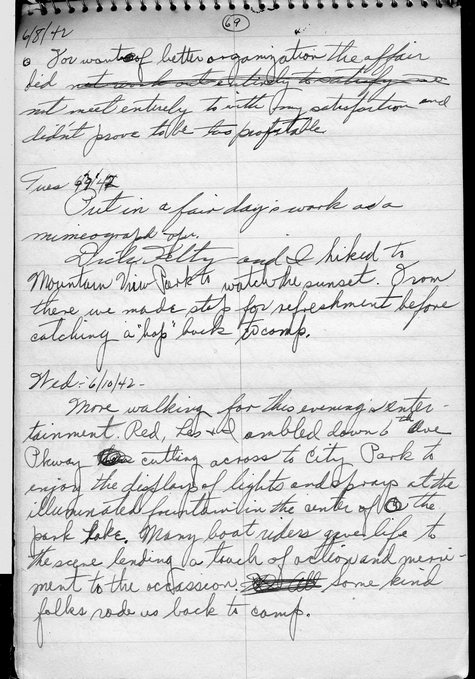 69
6/8/42
For want of better organization the affair
did not work out entirely to satisfy me
not meet entirely to with my satisfaction and
didn't prove to be too profitable.
Tues 6/9/42
Put in a fair day's work as a
mimeograph opr.
Dick Felty and I hiked to
Mountain View Park to watch the sunset. From
there we made stop for refreshment before
catching a "hop" back to camp.
Wed - 6/10/42 -
More walking for this evening's enter-
tainment. Red, Les & I ambled down 6th Ave
Pkway cutting across to City Park to
enjoy the display of lights and sprays at the
illuminated fountain in the center of the
park lake. Many boat riders gave life to
the scene lending a touch of action and merri-
ment to the occassion. Some kind
folks rode us back to camp.